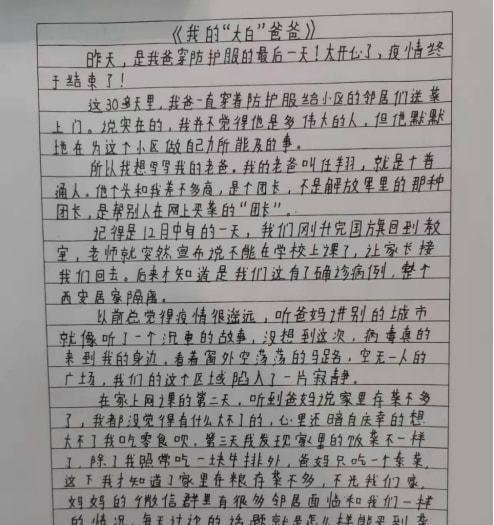 《我的“大白”爸爸》
昨天，是我爸穿防护服的最后一天！太开心了，疫情终
于结束了！
这30多天里，我爸一直穿着防护服给小区的邻居们送菜
上门。说实在的，我并不觉得他是多伟大的人，但他默默
地在为这个小区做自己力所能及的事。
所以我想写写我的老爸。我的老爸叫任翔，就是个普
通人。他个头和我差不多高，是个团长，不是解放军里的那种
团长，是帮别人在网上买菜的“团长”。
记得是12月中旬的一天，我们刚升完国旗回到教
室，老师就突然宣布说不能在学校上课了，让家长接
我们回去。后来才知道是我们这有了确诊病例，整个
西安居家隔离。
以前总觉得疫情很遥远，听爸妈讲别的城市
就像听了一个沉重的故事，没想到这次，病毒真的
来到我的身边，看着窗外空荡荡的马路，空无一人的
广场，我们的这个区域陷入了一片寂静。
在家上网课的第二天，听到爸妈说家里存菜不多
了，我都没觉得有什么大不了的，心里还暗自庆幸的想
大不了我吃零食呗，第三天我发现家里的饭菜不一样
了，除了我照常吃一块牛排外，爸妈只吃一个素菜，
这下我才知道了家里存粮存菜不多，不光我们家，
妈妈的微信群里有很多邻居面临和我们一样
的情况，每天讨论的话题就是怎么样能买到菜